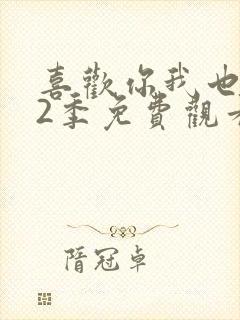 喜歡你我也
2季免費觀看
隋冠卓